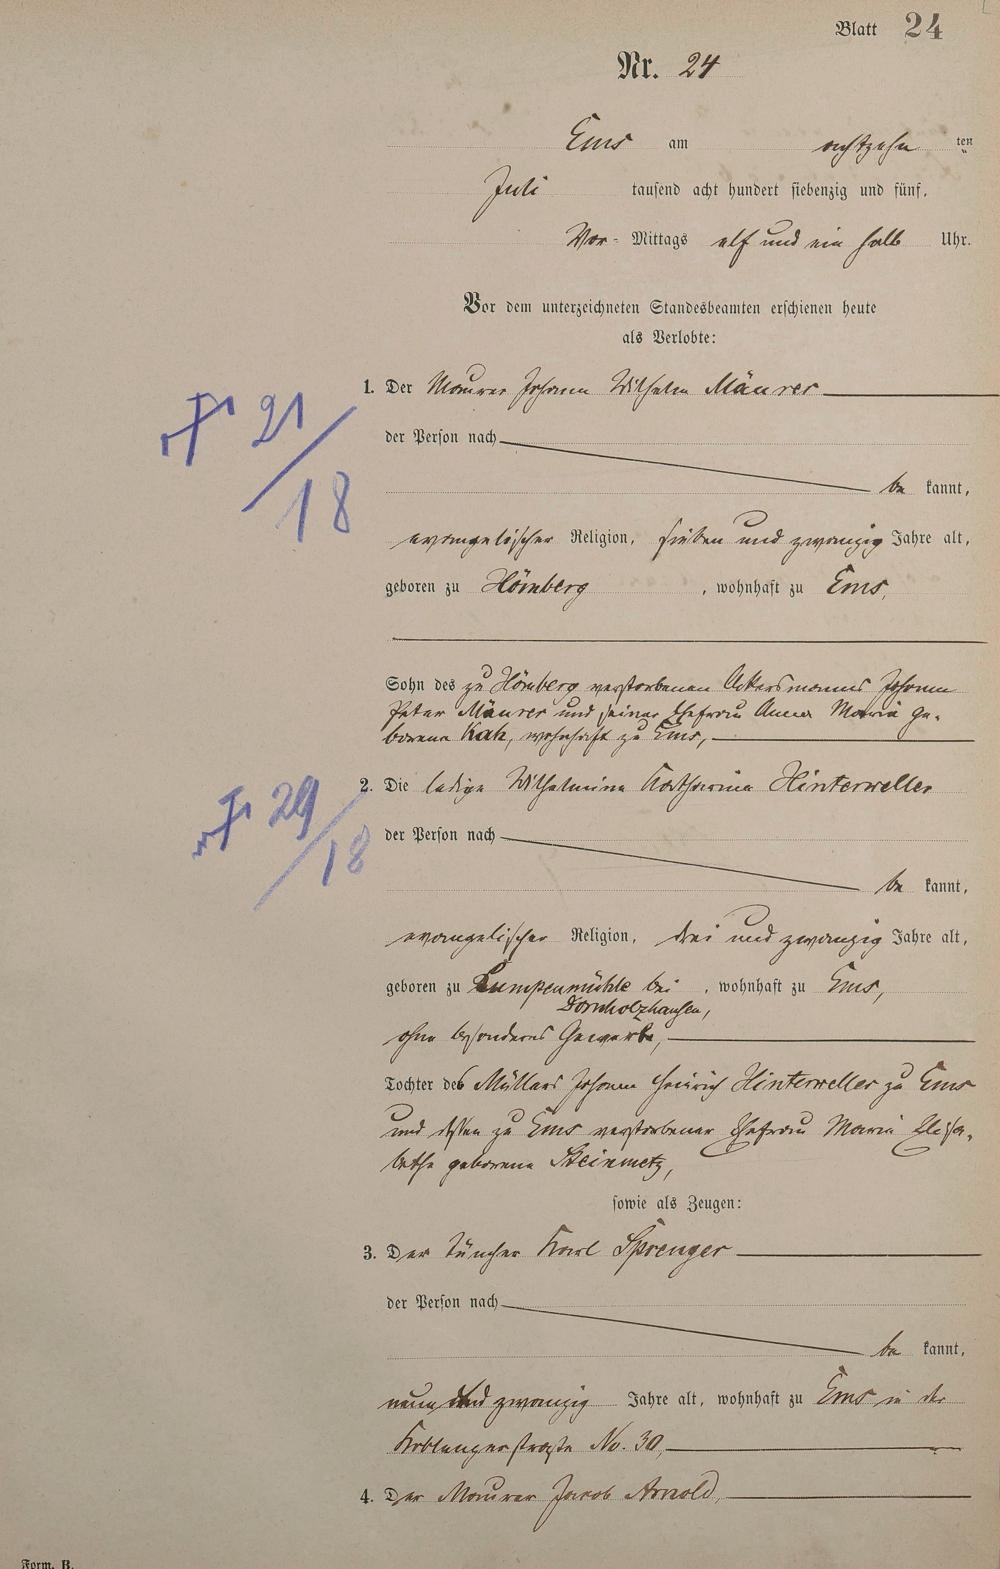 Blatt 24
Nr. 24
Ems am achtzehn ten
Juli tausend acht hundert siebenzig und fünf,
Vor- Mittags elf und ein halb Uhr.
Vor dem unterzeichneten Standesbeamten erschienen heute
als Verlobte:
1. Der Maurer Johann Wilhelm Mäurer
der Person nach
be kannt,
evangelischer Religion, sieben und zwanzig Jahre alt,
geboren zu Hömberg, wohnhaft zu Ems,
21/18
Sohn des zu Hömberg verstorbenen Ackersmannes Johann
Peter Mäurer und seiner Ehefrau Anna Maria ge-
borene Kah, wohnhaft zu Ems,
2. Die ledige Wilhelmine Katharina Hinterweller
29/18
der Person nach
be kannt,
evangelischer Religion, drei und zwanzig Jahre alt,
geboren zu Lumpenmühle bei, wohnhaft zu Ems,
Dornholzhausen,
ohne besonderes Gewerbe,
Tochter des Müllers Johann Heinrich Hinterweller zu Ems
und dessen zu Ems verstorbener Ehefrau Maria Elisa-
bethe geborene Steinmetz,
sowie als Zeugen:
3. Der Tüncher Karl Sprenger
der Person nach
be kannt,
neun und zwanzig Jahre alt, wohnhaft zu Ems in der
Koblenzerstraße No. 30,
4. Der Maurer Jacob Arnold,
Form. B.